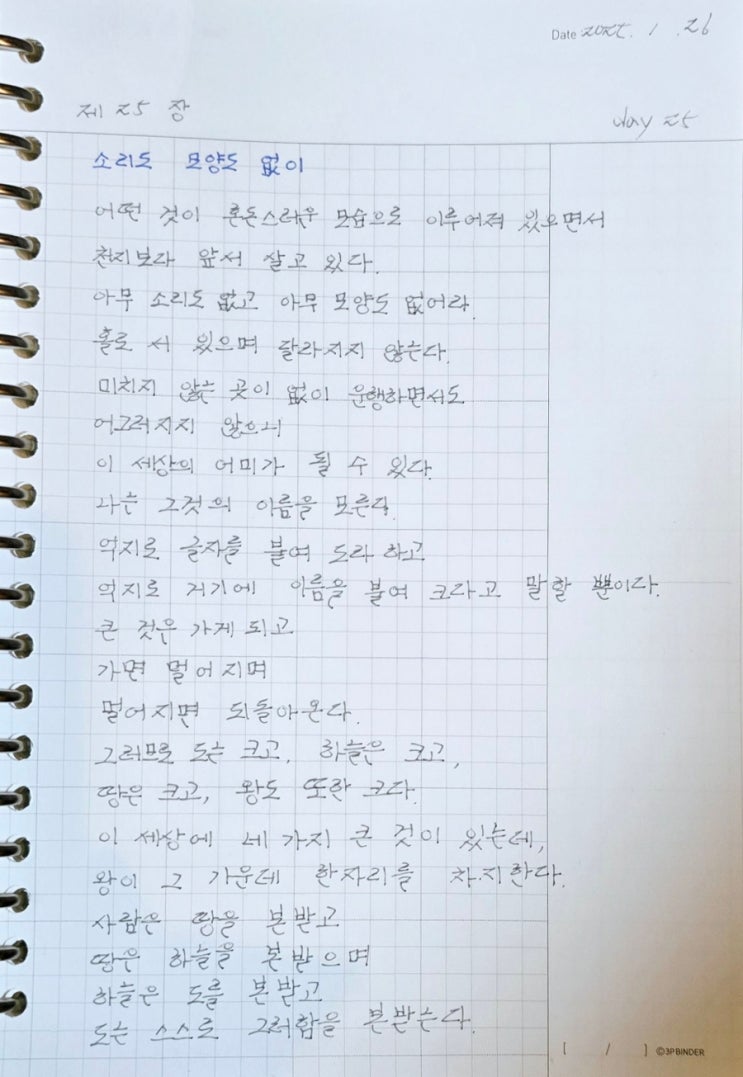 Date 2025. 1 .26
제 25 장
day 25
소리도 모양도 없이
어떤 것이 혼돈스러운 모습으로 이루어져 있으면서
천지보다 앞서 살고 있다.
아무 소리도 없고 아무 모양도 없어라.
홀로 서 있으며 달라지지 않는다.
미치지 않는 곳이 없이 운행하면서도
어그러지지 않으니
이 세상의 어미가 될 수 있다.
나는 그것의 이름을 모른다.
억지로 글자를 붙여 도라 하고
억지로 거기에 이름을 붙여 크다고 말할 뿐이다.
큰 것은 가게 되고
가면 멀어지며
멀어지면 되돌아온다.
그러므로 도는 크고, 하늘은 크고,
땅은 크고, 왕도 또한 크다.
이 세상에 네 가지 큰 것이 있는데,
왕이 그 가운데 한자리를 차지한다.
사람은 땅을 본받고
땅은 하늘을 본받으며
하늘은 도를 본받고
도는 스스로 그러함을 본받는다.
[ / ] ©3PBINDER